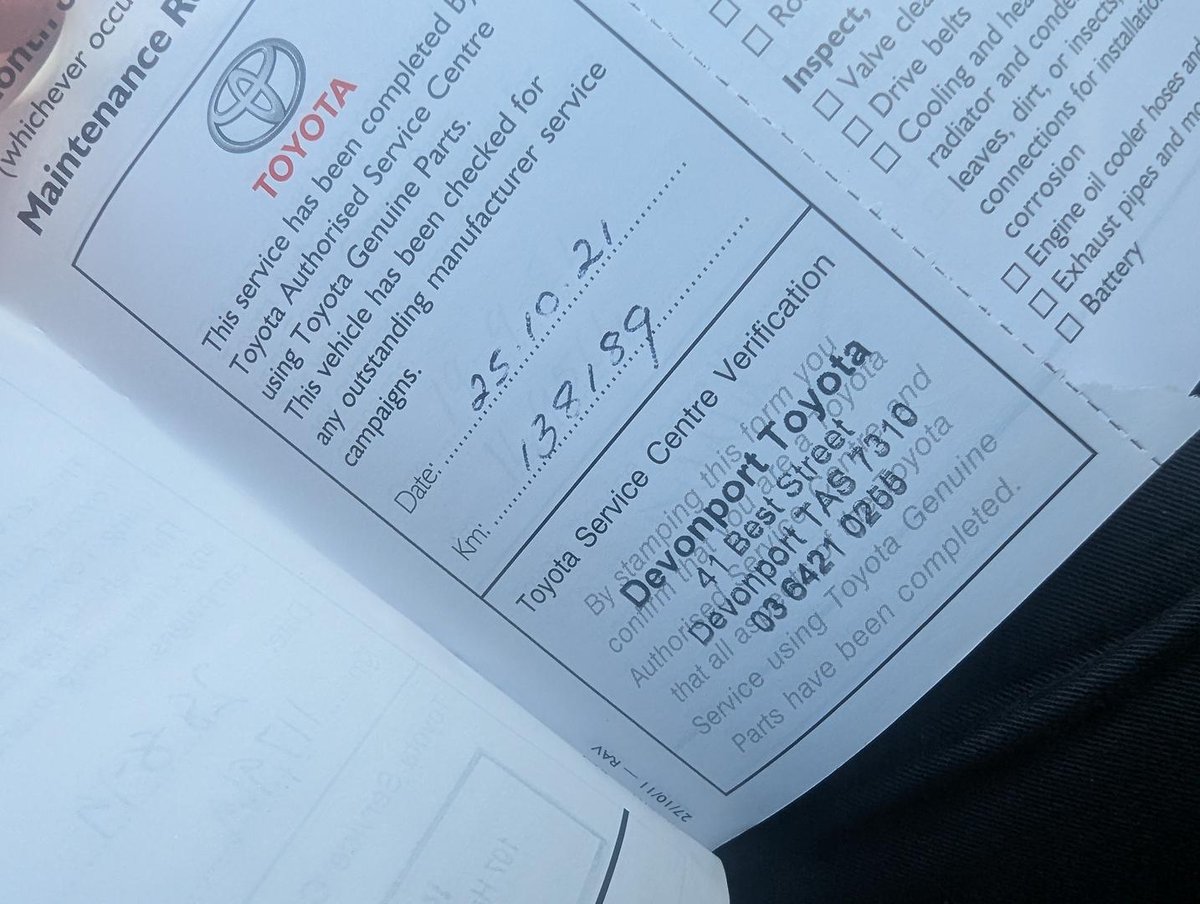 (whichever occu
Maintenance R
TOYOTA
This service has been completed by
Toyota Authorised Service Centre
using Toyota Genuine Parts.
This vehicle has been checked for
any outstanding manufacturer service
campaigns.
Date: 25.10.21
Km: 138189
Toyota Service Centre Verification
By stamping this form you
confirm that you are a Toyota
Authorised Service Centre and
that all aspects of Toyota
Service using Toyota Genuine
Parts have been completed.
Devonport Toyota
41 Best Street
Devonport TAS 7310
03 6421 0255
27/10/11 — RAV
Inspect,
Valve clea
Drive belts
Cooling and hea
radiator and conde
leaves, dirt, or insects,
connections for installatio
corrosion
Engine oil cooler hoses an
Exhaust pipes and m
Battery